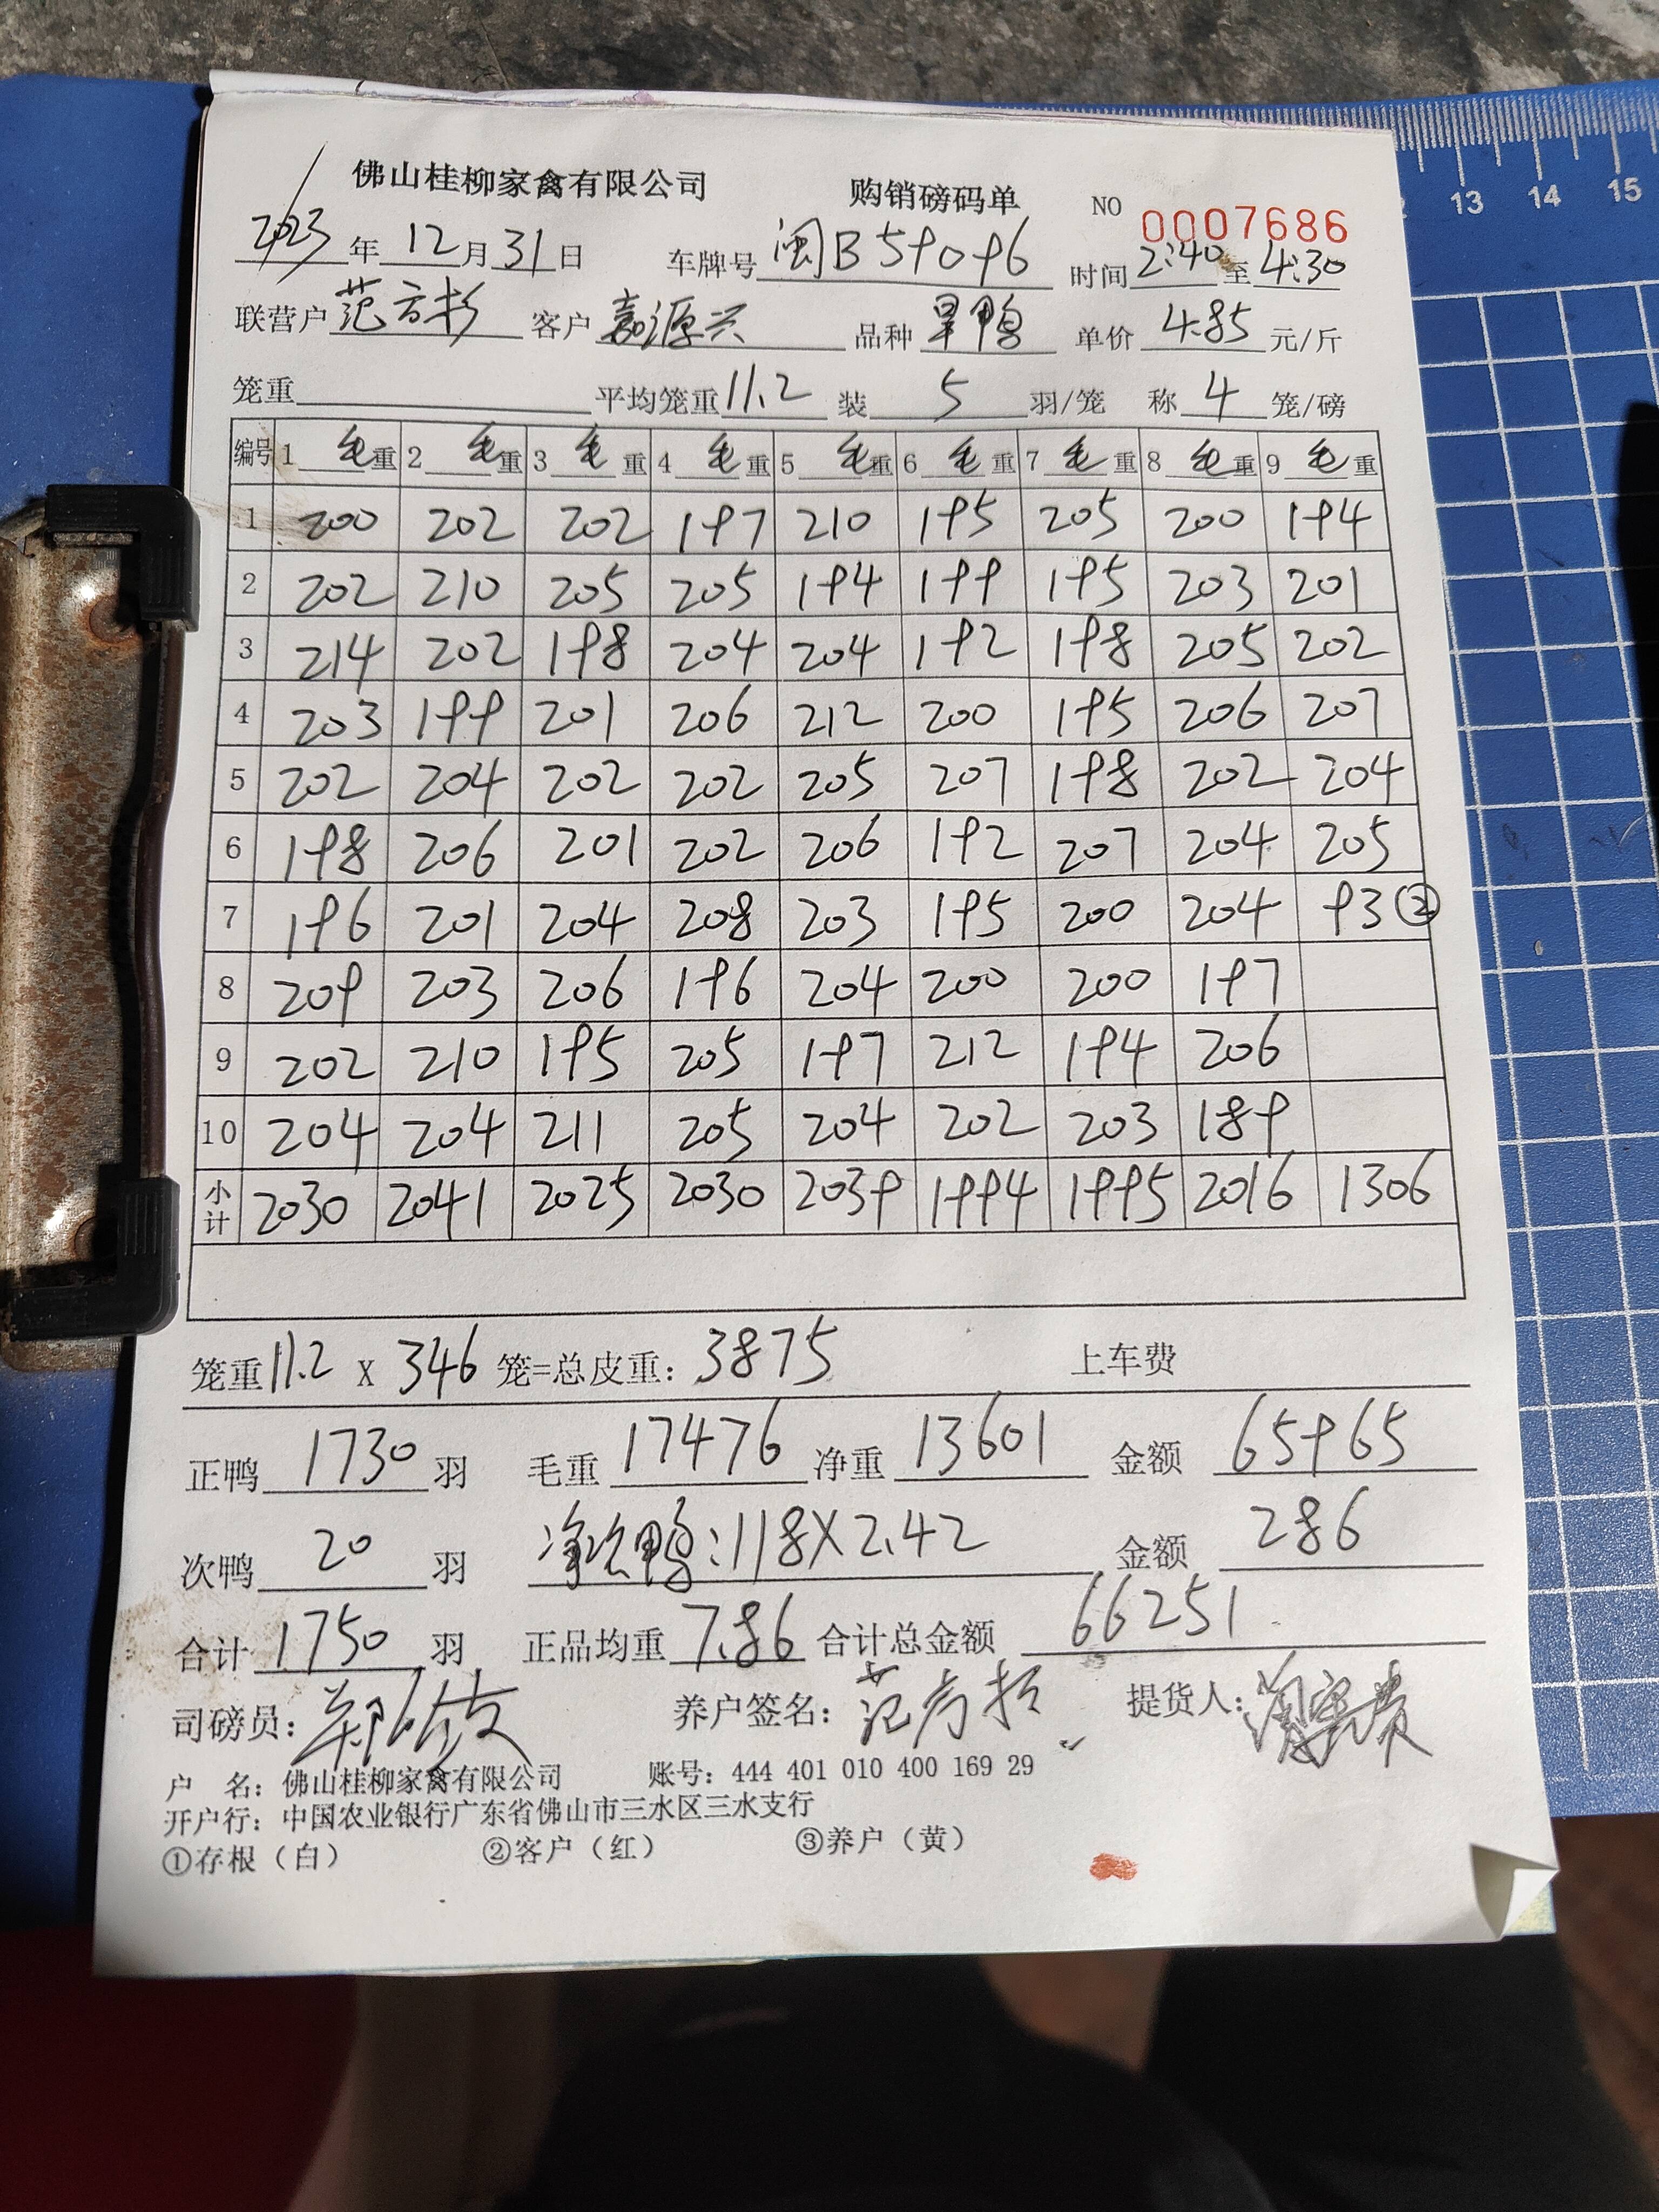 佛山桂柳家禽有限公司 购销磅码单 NO 0007686
2023年12月31日 车牌号 闽B59096 时间 2:40至4:30
联营户 范方杉 客户 嘉源兴 品种 旱鸭 单价 4.85 元/斤
笼重 平均笼重 11.2 装 5 羽/笼 称 4 笼/磅
编号 1 毛重 2 毛重 3 毛重 4 毛重 5 毛重 6 毛重 7 毛重 8 毛重 9 毛重
1 200 202 202 197 210 195 205 200 194
2 202 210 205 205 194 199 195 203 201
3 214 202 198 204 204 192 198 205 202
4 203 199 201 206 212 200 195 206 207
5 202 204 202 202 205 207 198 202 204
6 198 206 201 202 206 192 207 204 205
7 196 201 204 208 203 195 200 204 93②
8 209 203 206 196 204 200 200 197
9 202 210 195 205 197 212 194 206
10 204 204 211 205 204 202 203 189
小计 2030 2041 2025 2030 2039 1994 1995 2016 1306
笼重 11.2 X 346 笼=总皮重: 3875 上车费
正鸭 1730 羽 毛重 17476 净重 13601 金额 65965
次鸭 20 羽 净次鸭:118X2.42 金额 286
合计 1750 羽 正品均重 7.86 合计总金额 66251
司磅员: 养户签名: 范方杉 提货人:
户 名: 佛山桂柳家禽有限公司 账号: 444 401 010 400 169 29
开户行: 中国农业银行广东省佛山市三水区三水支行
①存根(白) ②客户(红) ③养户(黄)